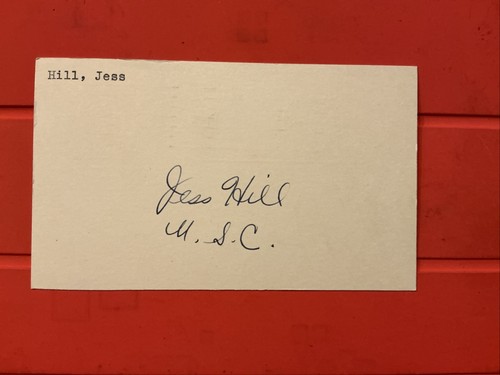 Hill, Jess
Jess Hill
U.S.C.